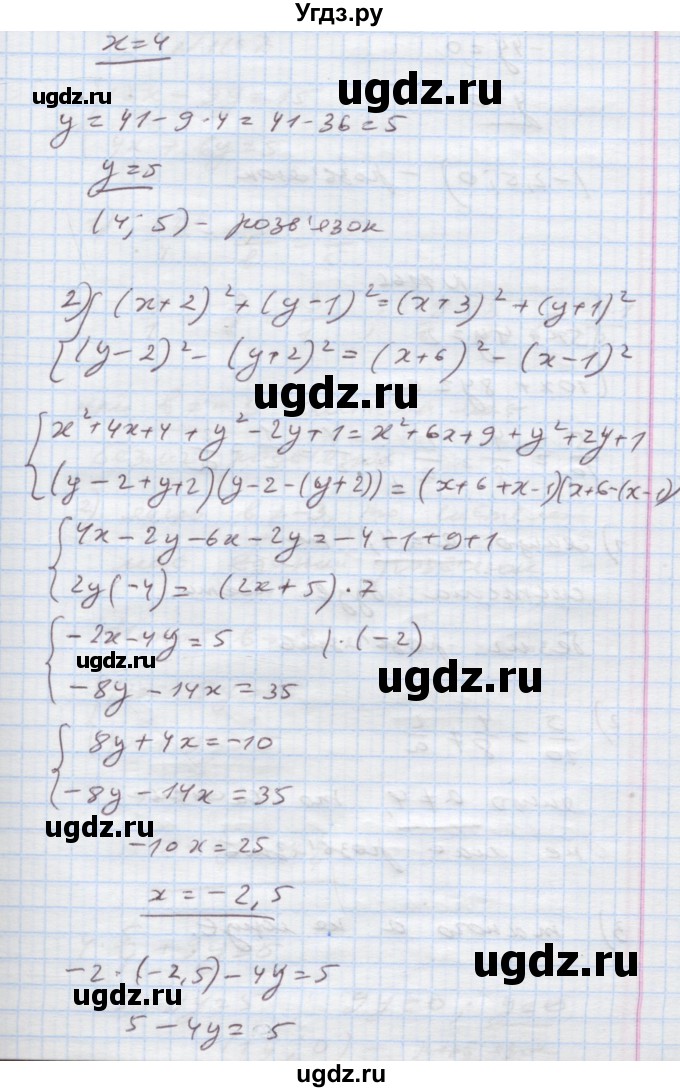 Угдз.ру
x = 4
ugdz.ru
ugdz.ru
y = 41 - 9 · 4 = 41 - 36 = 5
ugdz.ru
y = 5
(4; 5) - розв'язок
2) { (x + 2)² + (y - 1)² = (x + 3)² + (y + 1)²
(y - 2)² - (y + 2)² = (x + 6)² - (x - 1)²
ugdz.ru
{ x² + 4x + 4 + y² - 2y + 1 = x² + 6x + 9 + y² + 2y + 1
(y - 2 + y + 2)(y - 2 - (y + 2)) = (x + 6 + x - 1)(x + 6 - (x - 1))
ugdz.ru
{ 4x - 2y - 6x - 2y = -4 - 1 + 9 + 1
2y(-4) = (2x + 5) · 7
{ -2x - 4y = 5 | · (-2)
ugdz.ru
ugdz.ru
-8y - 14x = 35
{ 8y + 4x = -10
-8y - 14x = 35
ugdz.ru
ugdz.ru
-10x = 25
x = -2,5
ugdz.ru
-2 · (-2,5) - 4y = 5
ugdz.ru
5 - 4y = 5
ugdz.ru